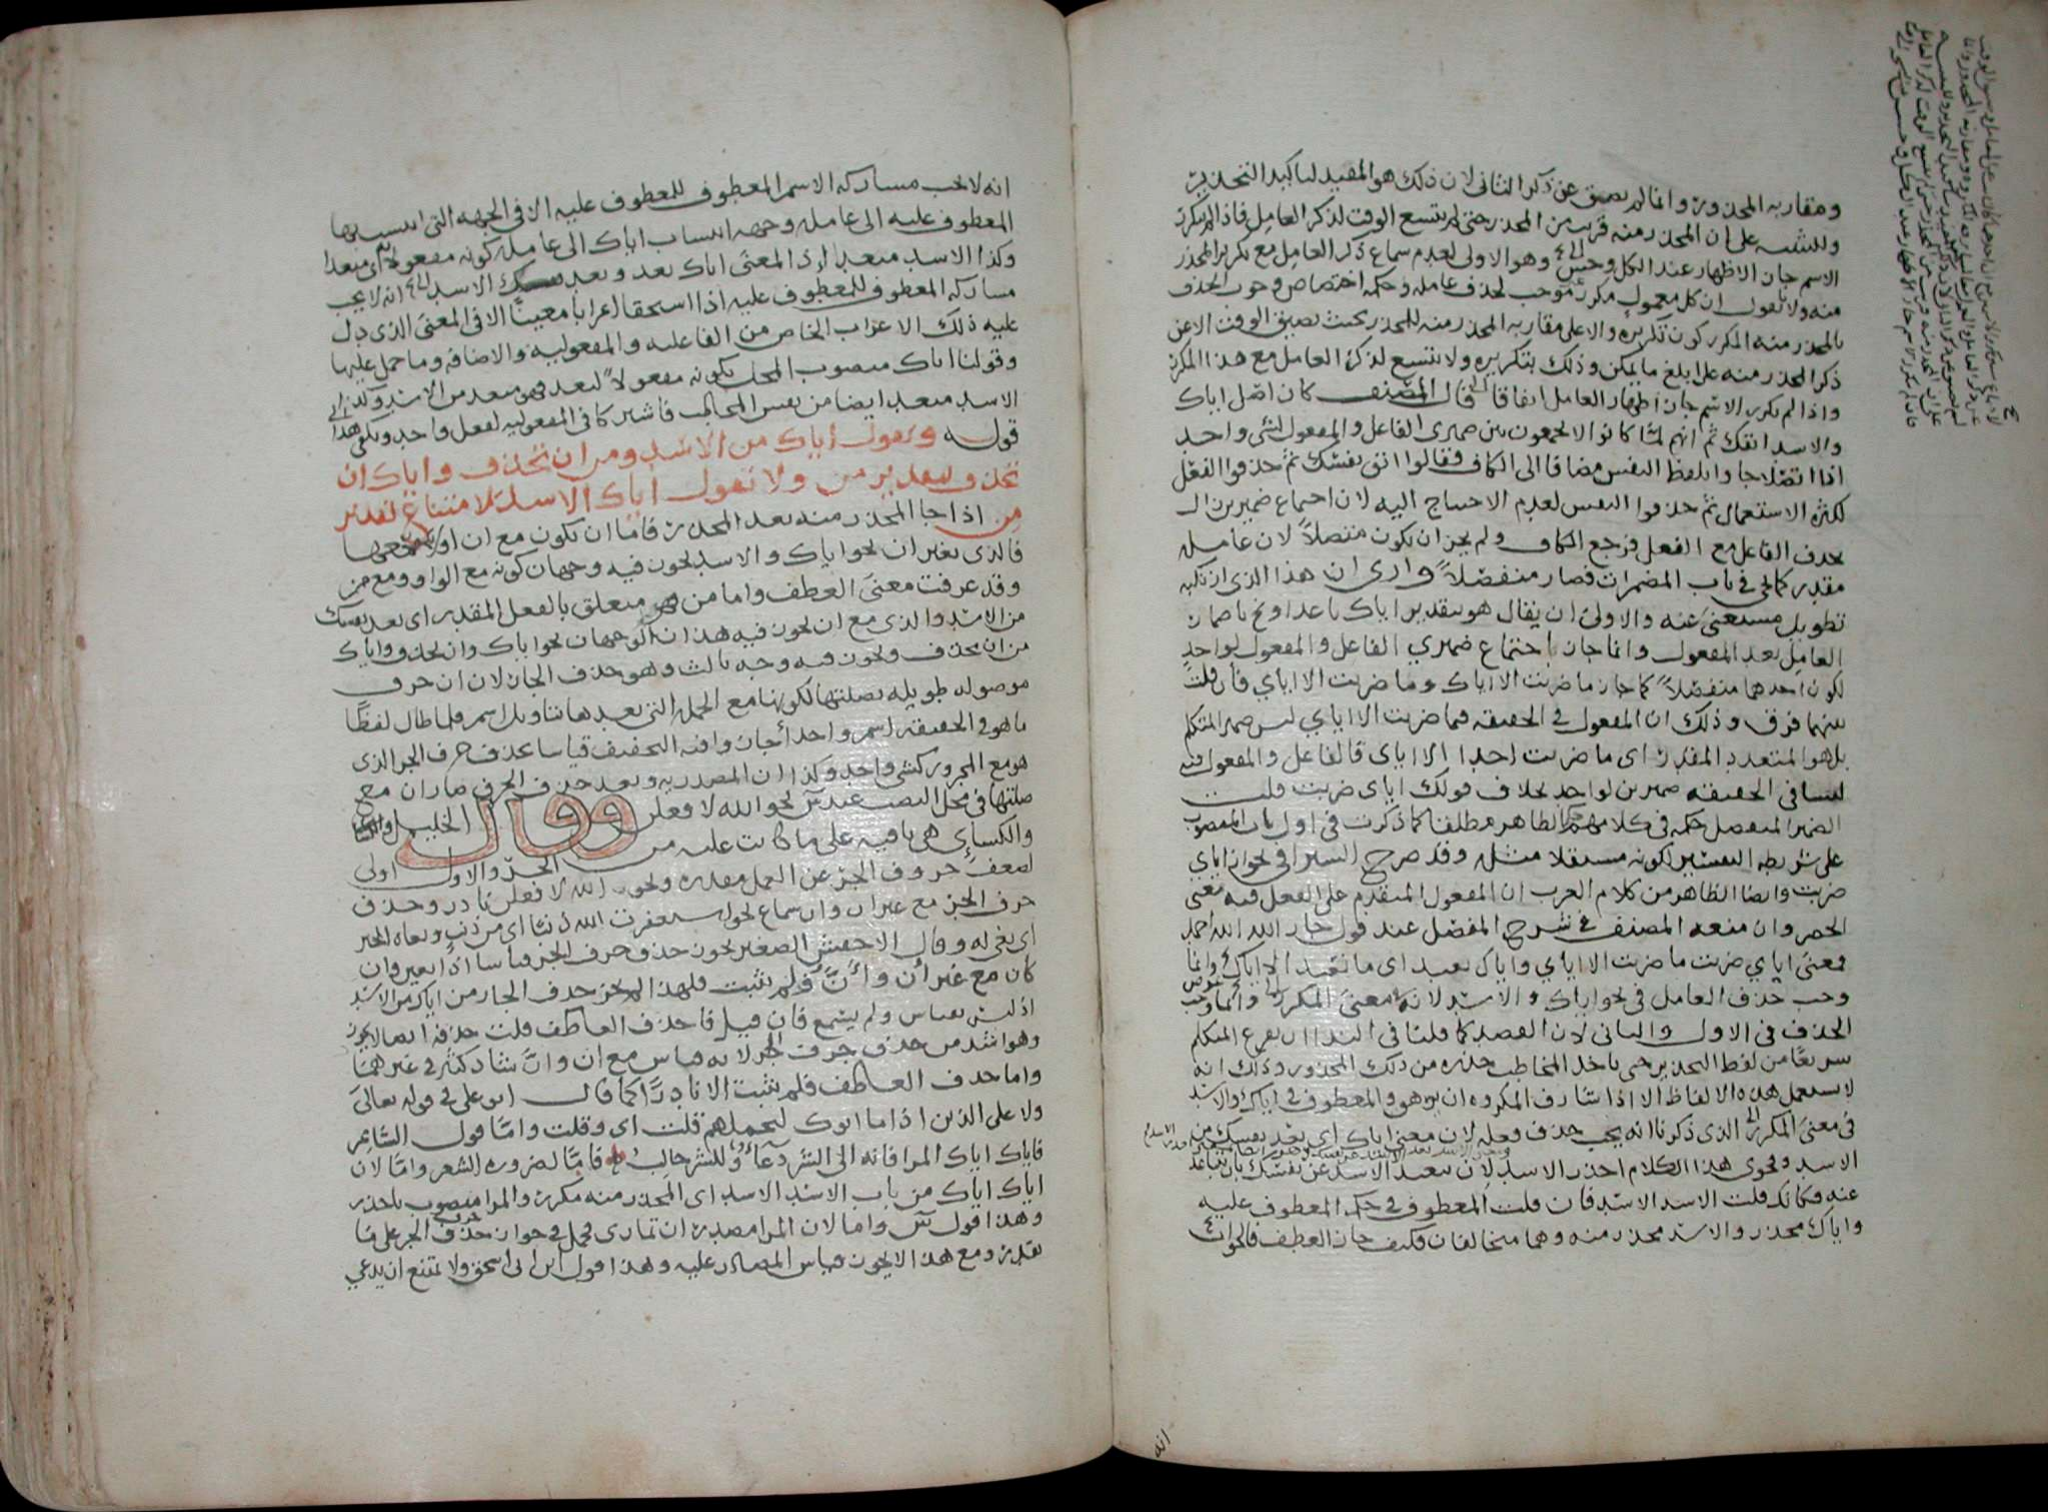 ومقاربة المحذور وانما لم يصق عن ذكر الثاني لان ذلك هو المفيد لتاكيد التحذير
وللتنبيه على ان المحذر منه قريب من المحذر حتى لم يتسع الوقت لذكر العامل فاذا لم يكرر
الاسم جاز الاظهار عند الكل وهو الاولى لعدم سماع ذكر العامل مع تكرير المحذر
منه ولا نقول ان كل معمول مكرر موجب لحذف عامله وحكمة اختصاص وجوب الحذف
بالمحذر منه المكرر كون تكريره دالا على مقاربة المحذر منه للمحذر بحيث يضيق الوقت الا عن
ذكر المحذر منه على ابلغ ما يمكن وذلك بتكريره ولا يتسع لذكر العامل مع هذا المكرر
واذا لم يكرر الاسم جاز اظهار العامل اتفاقا قال المصنف كان اصل اياك
والاسد اتقك ثم انهم لما كانوا لا يجمعون بين ضميري الفاعل والمفعول لشي واحد
اذا اتصلا جاوا بلفظ النفس مضافا الى الكاف فقالوا اتق نفسك ثم حذفوا الفعل
لكثرة الاستعمال ثم حذفوا النفس لعدم الاحتياج اليه لان اجتماع الضميرين زال
بحذف الفاعل مع الفعل فرجع الكاف ولم يجز ان يكون متصلا لان عامله
مقدر كما يجي في باب المضمرات فصار منفصلا وارى ان هذا الذي ارتكبه
تطويل مستغنى عنه والاولى ان يقال هو بتقدير اياك باعد او نح باضمار
العامل بعد المفعول وانما جاز اجتماع ضميري الفاعل والمفعول لواحد
لكون احدهما منفصلا كما جاز ما ضربت الا اياك وما ضربت الا اياي فان قلت
بينهما فرق وذلك ان المفعول في الحقيقة فيما ضربت الا اياي ليس ضمير المتكلم
بل هو المتعدد المقدر اي ما ضربت احدا الا اياي فالفاعل والمفعول فيه
ليسا في الحقيقة ضميرين لواحد بخلاف قولك اياي ضربت قلت
الضمير المنفصل حكمه في كلامهم حكم الظاهر مطلقا كما ذكرت في اول باب المنصوب
على شريطة التفسير لكونه مستقلا مثله وقد صرح السيرافي بجواز اياي
ضربت وايضا الظاهر من كلام العرب ان المفعول المتقدم على الفعل فيه معنى
الحصر وان منعه المصنف في شرح المفصل عند قول جار الله الله احمد
فمعنى اياي ضربت ما ضربت الا اياي واياك نعبد اي ما نعبد الا اياك وانما
وجب حذف العامل في نحو اياك والاسد لانه في معنى المكرر وانما وجب
الحذف في الاول والثاني لان القصد كما قلنا في الندا ان يفرغ المتكلم
سريعا من لفظ التحذير حتى ياخذ المخاطب حذره من ذلك المحذور وذلك انه
لا يستعمل هذه الالفاظ الا اذا شارف المكروه ان يرهق والمعطوف في اياك والاسد
في معنى المكرر الذي ذكرنا انه يجب حذف فعله لان معنى اياك اي بعد نفسك من
الاسد وفحوى هذا الكلام احذر الاسد لان تبعيد الاسد عن نفسك بان تتباعد
عنه فكانك قلت الاسد الاسد فان قلت المعطوف في حكم المعطوف عليه
واياك محذر والاسد محذر منه وهما متخالفان فكيف جاز العطف فالجواب
انه
انه لا يجب مشاركة الاسم المعطوف للمعطوف عليه الا في الجهة التي انتسب بها
المعطوف عليه الى عامله وجهة انتساب اياك الى عامله كونه مفعولا به اي مبعدا
وكذا الاسد مبعد اذ المعنى اياك بعد وبعد الاسد انه لا يجب
مشاركة المعطوف للمعطوف عليه اذا استحقا اعرابا معينا الا في المعنى الذي دل
عليه ذلك الاعراب الخاص من الفاعلية والمفعولية والاضافة وما حمل عليها
وقولنا اياك منصوب المحل بكونه مفعولا لبعد فهو مبعد من الاسد وكذا
الاسد مبعد ايضا من نفس المخاطب فاشتركا في المفعولية لفعل واحد ويكفي هذا
قوله وتقول اياك من الاسد ومن ان تحذف واياك ان
تحذف بتقدير من ولا تقول اياك الاسد لامتناع تقدير
من اذا جا المحذر منه بعد المحذر فاما ان يكون مع ان او لا
فالذي بغير ان نحو اياك والاسد يجوز فيه وجهان كونه مع الواو ومع من
وقد عرفت معنى العطف واما من فهو متعلق بالفعل المقدر اي بعد نفسك
من الاسد والذي مع ان يجوز فيه هذان الوجهان نحو اياك وان تحذف واياك
من ان تحذف ويجوز فيه وجه ثالث وهو حذف الجار لان ان حرف
موصولة طويلة بصلتها لكونها مع الجملة التي بعدها بتاويل اسم فلما طال لفظا
ما هو في الحقيقة اسم واحد اجازوا فيه التخفيف قياسا بحذف حرف الجر الذي
هو مع المجرور كشي واحد وكذا ان المصدرية وبعد حذف الحرف صار ان مع
صلتها في محل النصب عند س نحو الله لافعلن وقال الخليل
والكسائي هي باقية على ما كانت عليه من الجر والاول اولى
لضعف حروف الجر عن العمل مقدرة ونحو الله لافعلن نادر وحذف
حرف الجر مع غير ان وان سماع نحو استغفرت الله ذنبا اي من ذنب وبغاه الخير
اي بغى له وقال الاخفش الصغير يجوز حذف حرف الجر قياسا اذا تعين وان
كان مع غير ان وان ولم يثبت فلهذا لم يجز حذف الجار من اياك من الاسد
اذ ليس بقياس ولم يسمع فان قيل فاحذف العاطف قلت حذفه ايضا لا يجوز
وهو اشد من حذف حرف الجر لانه قياس مع ان وان شاذ كثير في غيرهما
واما حذف العاطف فلم يثبت الا نادرا كما قال ابو علي في قوله تعالى
ولا على الذين اذا ما اتوك لتحملهم قلت اي وقلت واما قول الشاعر
فاياك اياك المرا فانه الى الشر دعاء وللشر جالب فاما لضرورة الشعر واما لان
اياك اياك من باب الاسد الاسد اي المحذر منه مكرر والمرا منصوب باحذر
وهذا قول س واما لان المرا مصدر ان تماري فحمل في جواز حذف حرف الجر على ما
تقدر ومع هذا لا يجوز قياس المصادر عليه وهذا قول ابن ابي اسحق ولا يمتنع ان يدعي